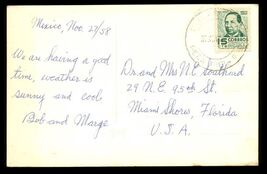 Mexico, Nov. 27/58
We are having a good
time, weather is
sunny and cool
Bob and Marge
Dr. and Mrs N.C. Southind
29 N.E. 95th St.
Miami Shores, Florida
U.S.A.
CORREOS